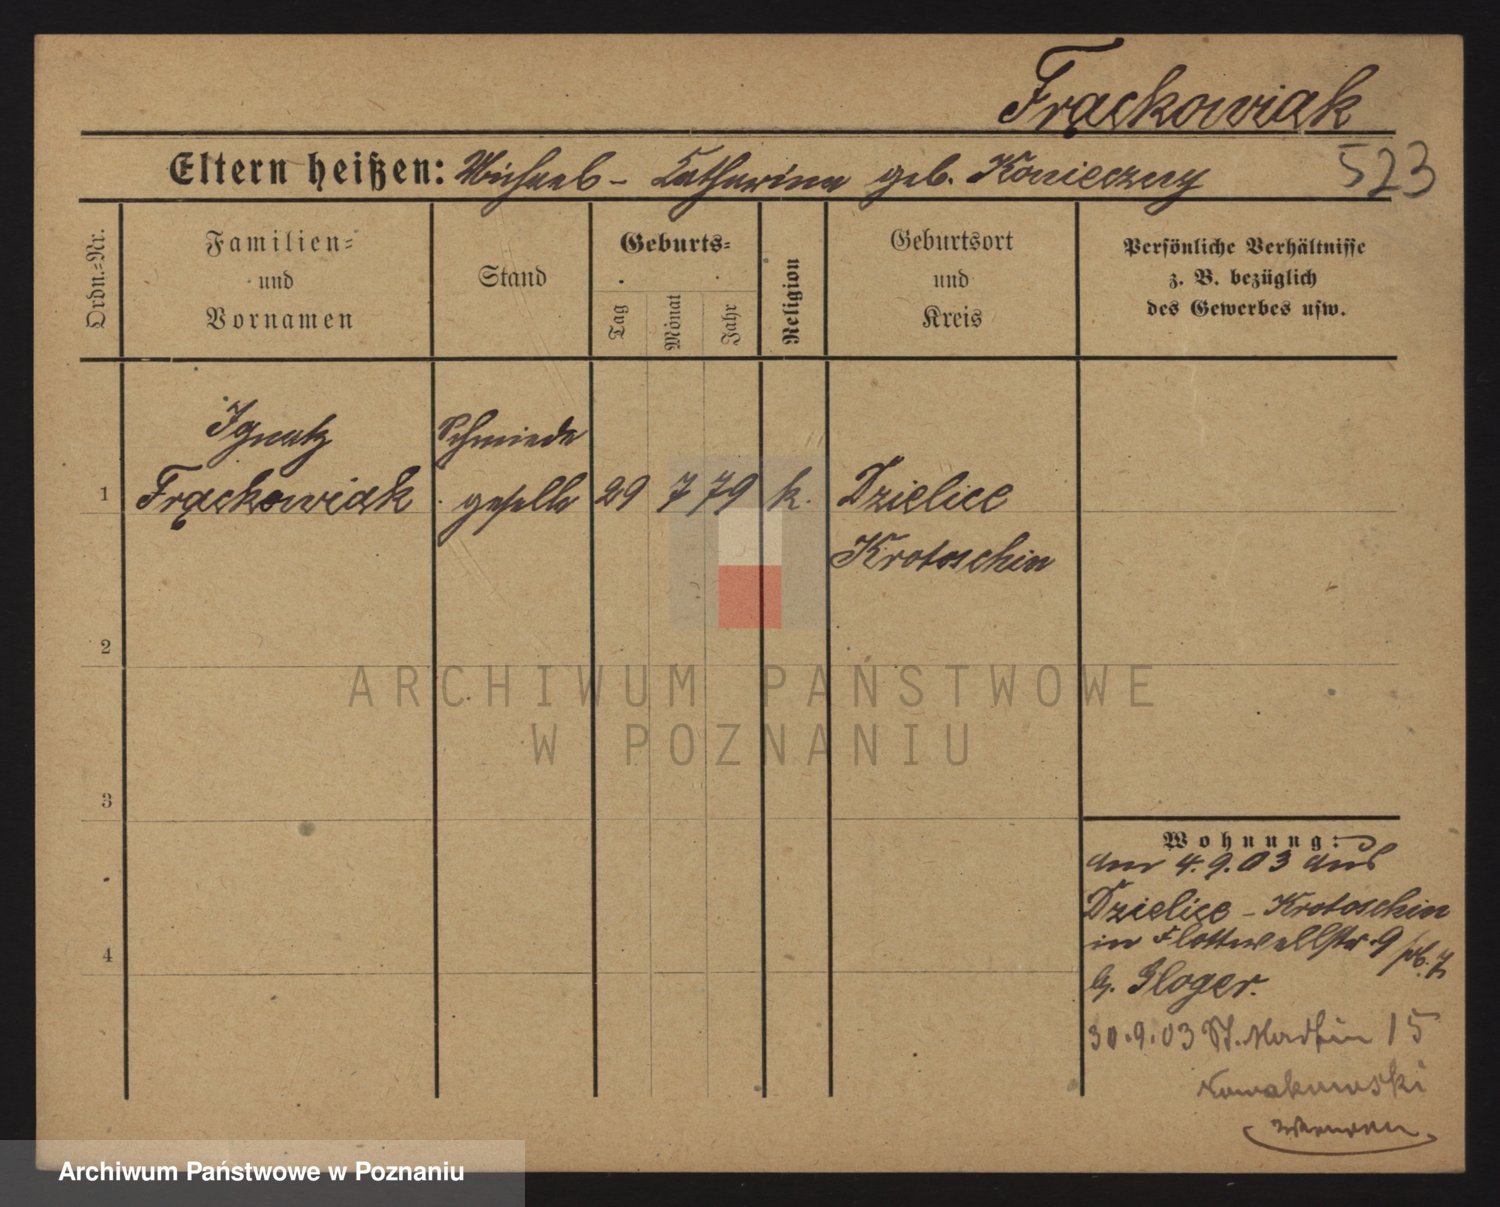 Frąckowiak
Eltern heißen: Michael - Catharina geb. Konieczny
523
Ordn.-Nr.
Familien-
und
Vornamen
Stand
Geburts-
Tag
Monat
Jahr
Religion
Geburtsort
und
Kreis
Persönliche Verhältnisse
z. B. bezüglich
des Gewerbes usw.
Ignatz Schmiede
1 Frąckowiak geselle 29 7 79 k. Dzielice
Krotoschin
2
ARCHIWUM PAŃSTWOWE
W POZNANIU
3
4
Wohnung:
am 4.9.03 aus
Dzielice - Krotoschin
in Flottwellstr. 9
b. Gloger.
30.9.03 St. Martin 15
Nowakowski
Archiwum Państwowe w Poznaniu